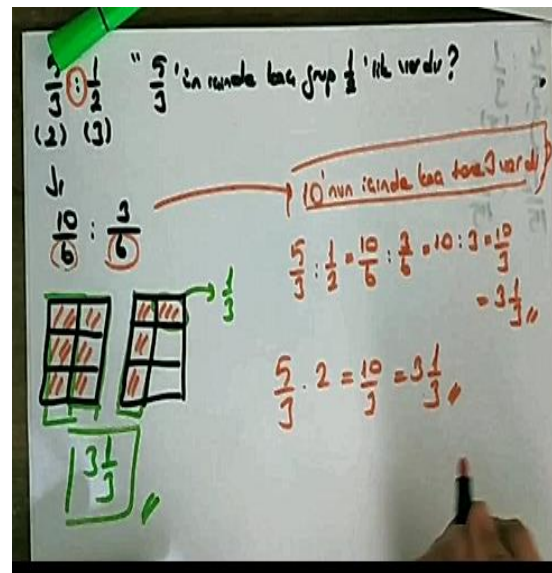 5/3 : 1/2 " 5/3 'in içinde kaç grup 1/2 'lik vardır?
(2) (3)
10/6 : 3/6
10'nun içinde kaç tane 3 vardır
5/3 : 1/2 = 10/6 : 3/6 = 10 : 3 = 10/3
= 3 1/3 //
1/3
5/3 . 2 = 10/3 = 3 1/3 //
3 1/3 //